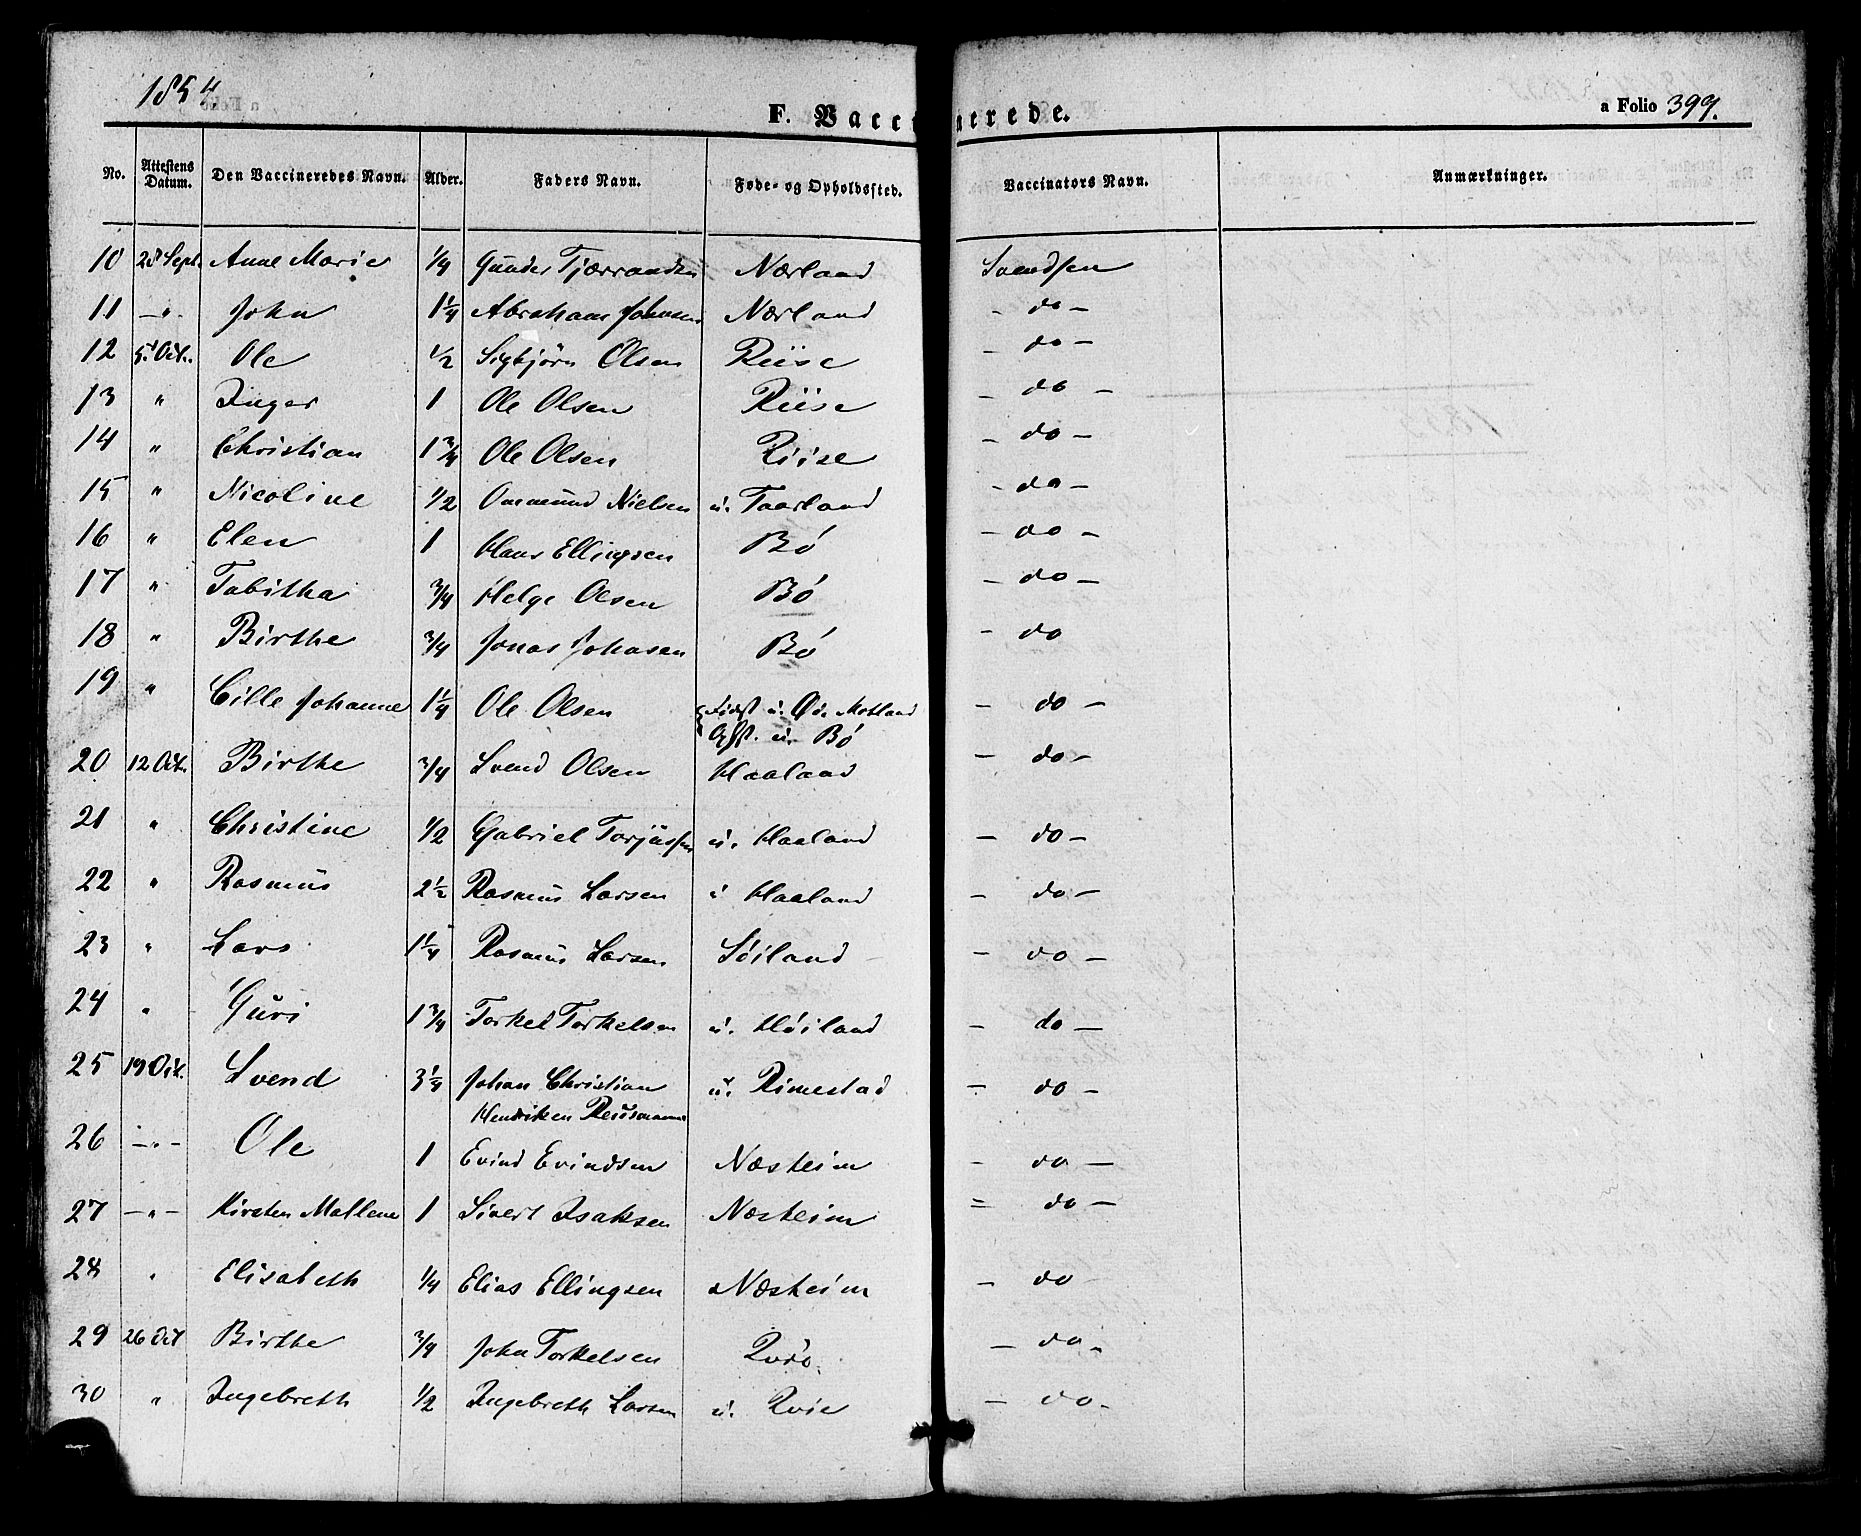 1854
F. Vaccinerede.
a Folio 399.
No. Attestens Datum. Den Vaccineredes Navn. Alder. Faders Navn. Føde- og Opholdssted. Vaccinators Navn. Anmærkninger.
10 28 Sept. Anne Marie 1/4 Gunder Tjærrandsen Nærland Svendsen
11 -"- John 1 1/4 Abraham Johnsen Nærland - do -
12 5t Oct. Ole 1/2 Sigbjörn Olsen Riise - do -
13 " Inger 1 Ole Olsen Riise - do -
14 " Christian 1 3/4 Ole Olsen Riise - do -
15 " Nicoline 1/2 Ommund Nielsen u. Taarland - do -
16 " Elen 1 Hans Ellingsen Bó - do -
17 " Tabitha 3/4 Helge Olsen Bó - do -
18 " Birthe 3/4 Jonas Johnsen Bó - do
19 " Cille Johanne 1 1/4 Ole Olsen Födest u. Motland - do -
u. Bó
20 12 Oct. Birthe 3/4 Svend Olsen Haaland - do -
21 " Christine 1/2 Gabriel Torjussen u. Haaland - do -
22 " Rasmus 2 1/2 Rasmus Larsen i Haaland - do -
23 " Lars 1 1/4 Rasmus Larsen Söiland - do -
24 " Guri 1 3/4 Torkel Torkelsen u. Höiland - do -
25 19 Oct. Svend 3 1/4 Johan Christian u. Rimestad - do -
Hendriken Reusmann
26 -"- Ole 1 Evind Evindsen Næsheim - do -
27 -"- Kirsten Mallene 1 Sivert Isaksen Næsheim = do -
28 " Elisabeth 1/4 Elias Ellingsen Næsheim - do
29 26 Oct Birthe 3/4 John Torkelsen - do -
30 " Ingebreth 1/2 Ingebreth Larsen u. Qvie - do -